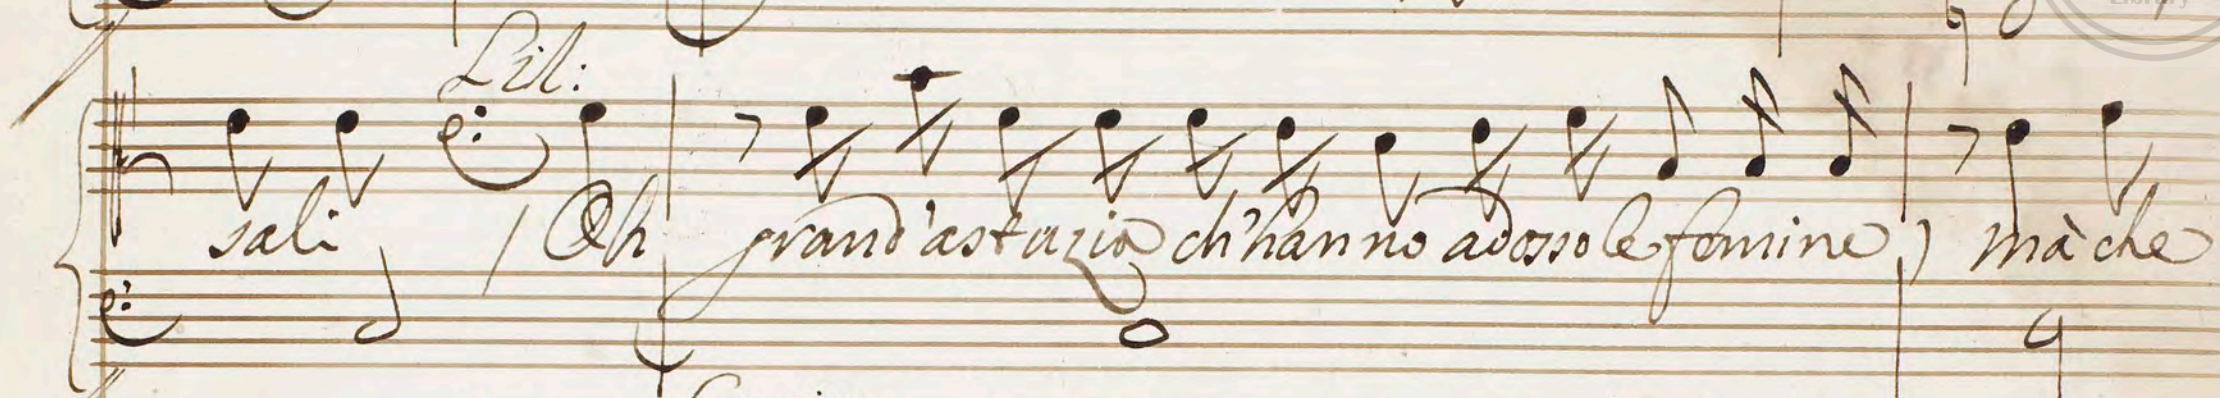 Lil:
sali (Oh grand'astuzia ch'hanno adosso le femine) mà che
Library